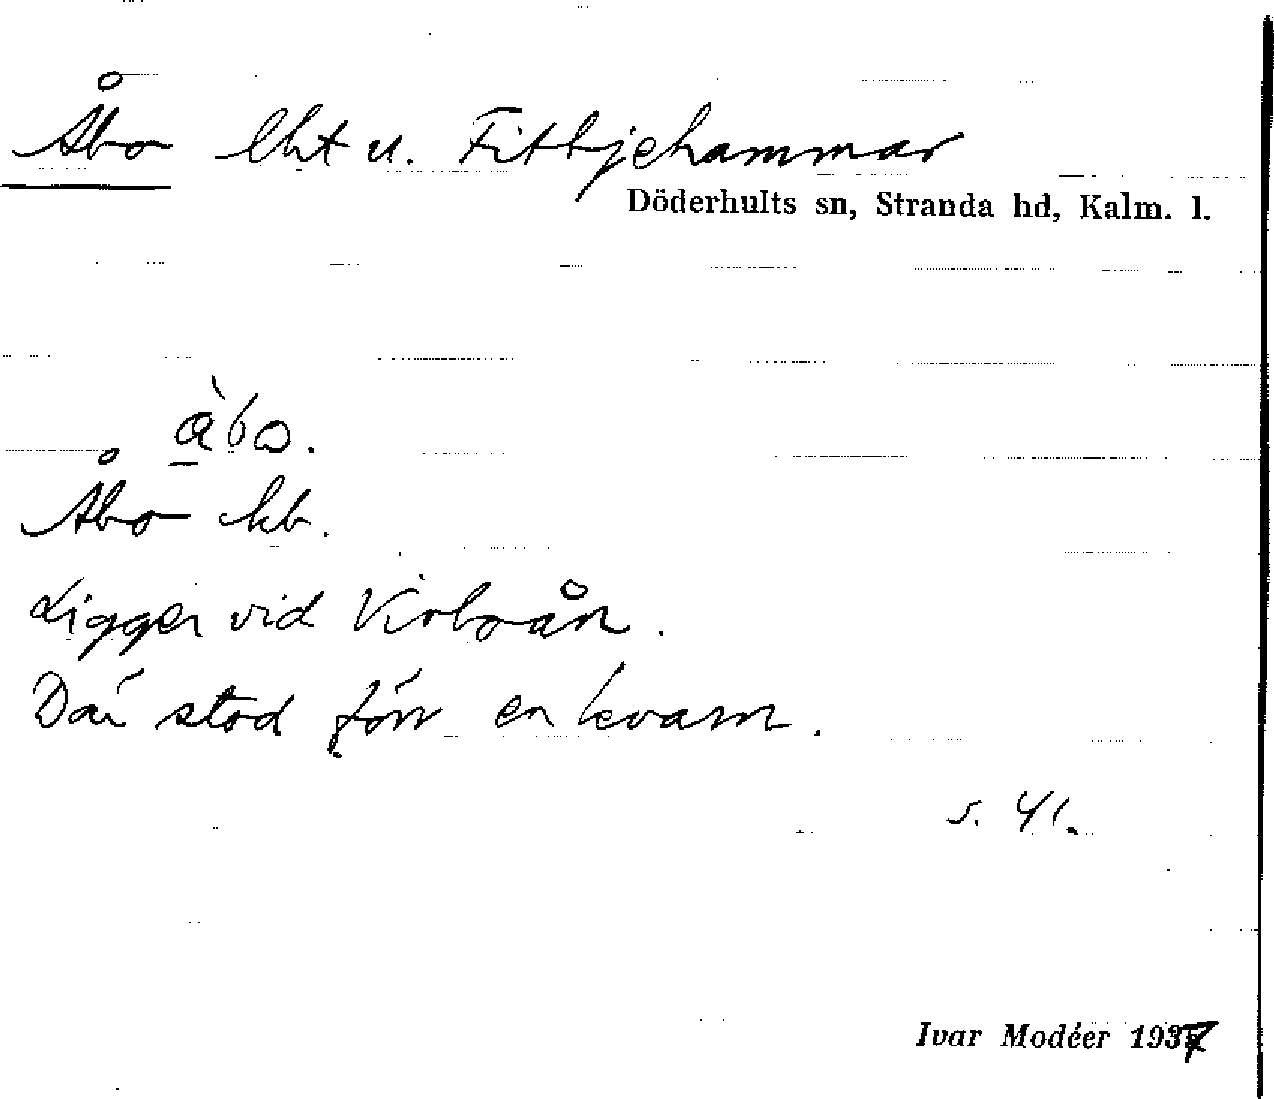 Åbo lht u. Fittjehammar
Döderhults sn, Stranda hd, Kalm. l.
àbo.
Åbo kb.
Ligger vid Virboån.
Där stod förr en kvarn.
s. 41.
Ivar Modéer 1937